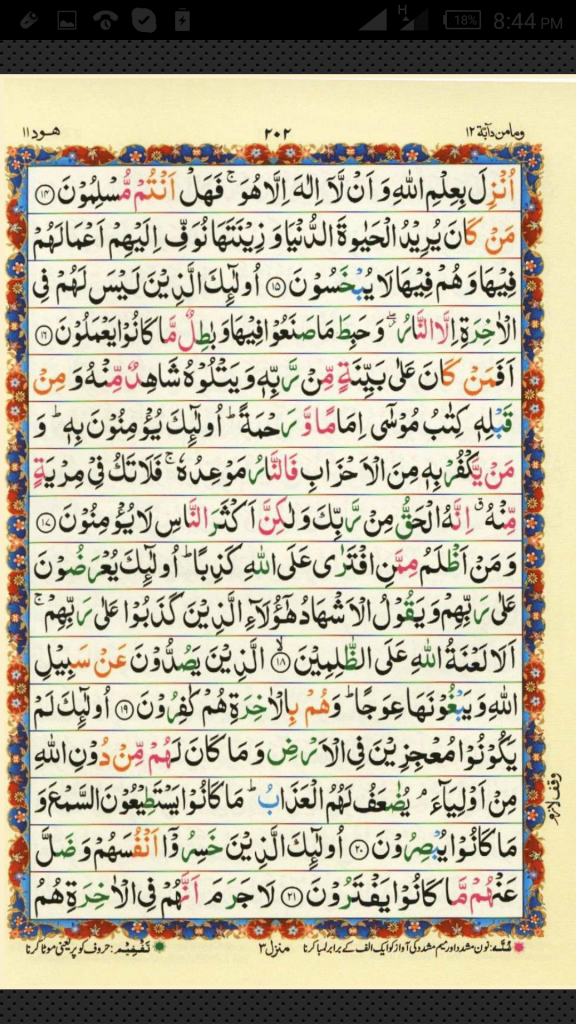 H 18% 8:44 PM
ومامن دآبة ١٢ ٢٠٢ هود ١١
اُنْزِلَ بِعِلْمِ اللّٰهِ وَ اَنْ لَّاۤ اِلٰهَ اِلَّا هُوَ ۚ فَهَلْ اَنْتُمْ مُّسْلِمُوْنَ ﴿۱۴﴾
مَنْ كَانَ يُرِيْدُ الْحَيٰوةَ الدُّنْيَا وَ زِيْنَتَهَا نُوَفِّ اِلَيْهِمْ اَعْمَالَهُمْ
فِيْهَا وَ هُمْ فِيْهَا لَا يُبْخَسُوْنَ ﴿۱۵﴾ اُولٰٓئِكَ الَّذِيْنَ لَيْسَ لَهُمْ فِي
الْاٰخِرَةِ اِلَّا النَّارُ ۖ وَ حَبِطَ مَا صَنَعُوْا فِيْهَا وَ بٰطِلٌ مَّا كَانُوْا يَعْمَلُوْنَ ﴿۱۶﴾
اَفَمَنْ كَانَ عَلٰى بَيِّنَةٍ مِّنْ رَّبِّهٖ وَ يَتْلُوْهُ شَاهِدٌ مِّنْهُ وَ مِنْ
قَبْلِهٖ كِتٰبُ مُوْسٰٓى اِمَامًا وَّ رَحْمَةً ؕ اُولٰٓئِكَ يُؤْمِنُوْنَ بِهٖ ؕ وَ
مَنْ يَّكْفُرْ بِهٖ مِنَ الْاَحْزَابِ فَالنَّارُ مَوْعِدُهٗ ۚ فَلَا تَكُ فِيْ مِرْيَةٍ
مِّنْهُ ۗ اِنَّهُ الْحَقُّ مِنْ رَّبِّكَ وَ لٰكِنَّ اَكْثَرَ النَّاسِ لَا يُؤْمِنُوْنَ ﴿۱۷﴾
وَ مَنْ اَظْلَمُ مِمَّنِ افْتَرٰى عَلَى اللّٰهِ كَذِبًا ؕ اُولٰٓئِكَ يُعْرَضُوْنَ
عَلٰى رَبِّهِمْ وَ يَقُوْلُ الْاَشْهَادُ هٰٓؤُلَآءِ الَّذِيْنَ كَذَبُوْا عَلٰى رَبِّهِمْ ۚ
اَلَا لَعْنَةُ اللّٰهِ عَلَى الظّٰلِمِيْنَ ﴿۱۸﴾ الَّذِيْنَ يَصُدُّوْنَ عَنْ سَبِيْلِ
اللّٰهِ وَ يَبْغُوْنَهَا عِوَجًا ؕ وَ هُمْ بِالْاٰخِرَةِ هُمْ كٰفِرُوْنَ ﴿۱۹﴾ اُولٰٓئِكَ لَمْ
يَكُوْنُوْا مُعْجِزِيْنَ فِي الْاَرْضِ وَ مَا كَانَ لَهُمْ مِّنْ دُوْنِ اللّٰهِ
مِنْ اَوْلِيَآءَ ۘ يُضٰعَفُ لَهُمُ الْعَذَابُ ؕ مَا كَانُوْا يَسْتَطِيْعُوْنَ السَّمْعَ وَ
وقف لازم
مَا كَانُوْا يُبْصِرُوْنَ ﴿۲۰﴾ اُولٰٓئِكَ الَّذِيْنَ خَسِرُوْۤا اَنْفُسَهُمْ وَ ضَلَّ
عَنْهُمْ مَّا كَانُوْا يَفْتَرُوْنَ ﴿۲۱﴾ لَا جَرَمَ اَنَّهُمْ فِي الْاٰخِرَةِ هُمُ
غُنَّه: نون مشدد اور میم مشدد کی آواز کو ایک الف کے برابر لمبا کرنا منزل ۳ تَفْخِیْم: حروف کو پُر یعنی موٹا کرنا